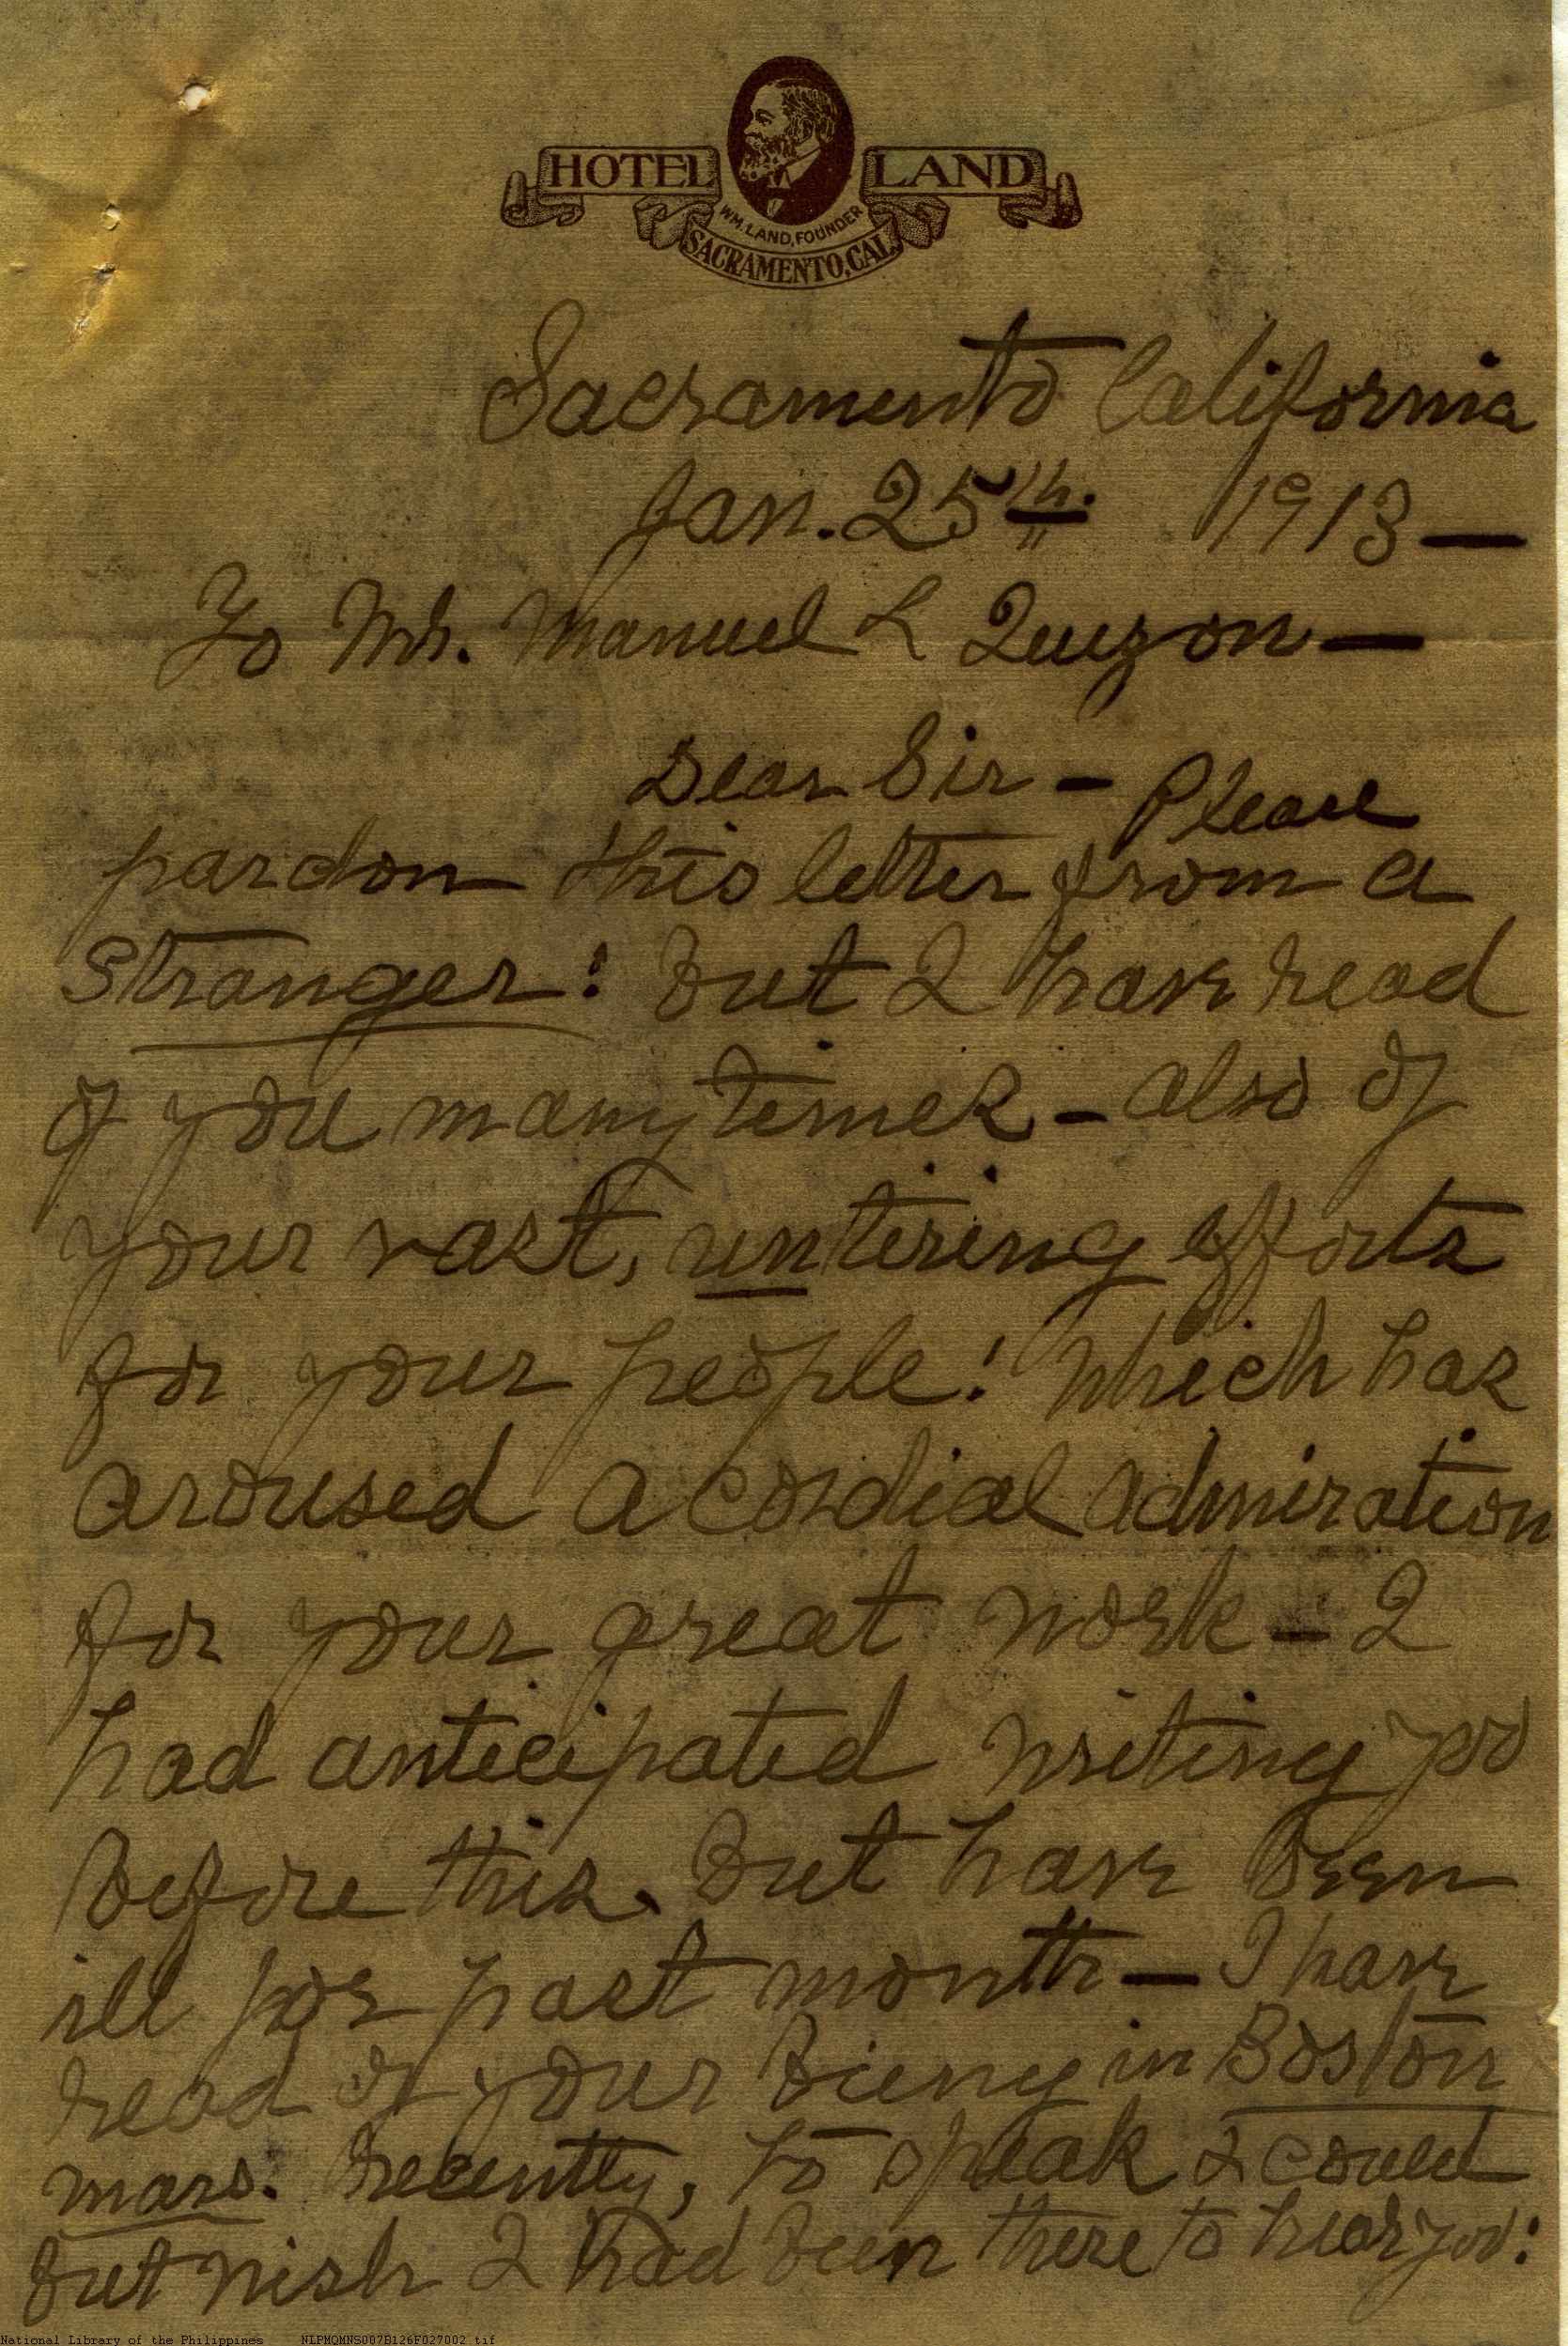 HOTEL LAND
WM. LAND, FOUNDER
SACRAMENTO, CAL.
Sacramento California
Jan. 25th. 1913 —
To Mr. Manuel L Quezon —
Dear Sir — Please
pardon this letter from a
stranger! but I have read
of you many times — also of
your vast, untiring efforts
for your people! Which has
aroused a cordial admiration
for your great work — I
had anticipated writing you
before this, but have been
ill for past month — I have
read of your being in Boston
mass. recently, to speak & could
but wish I had been there to hear you!
National Library of the Philippines NLPMQMNS007B126F027002.tif